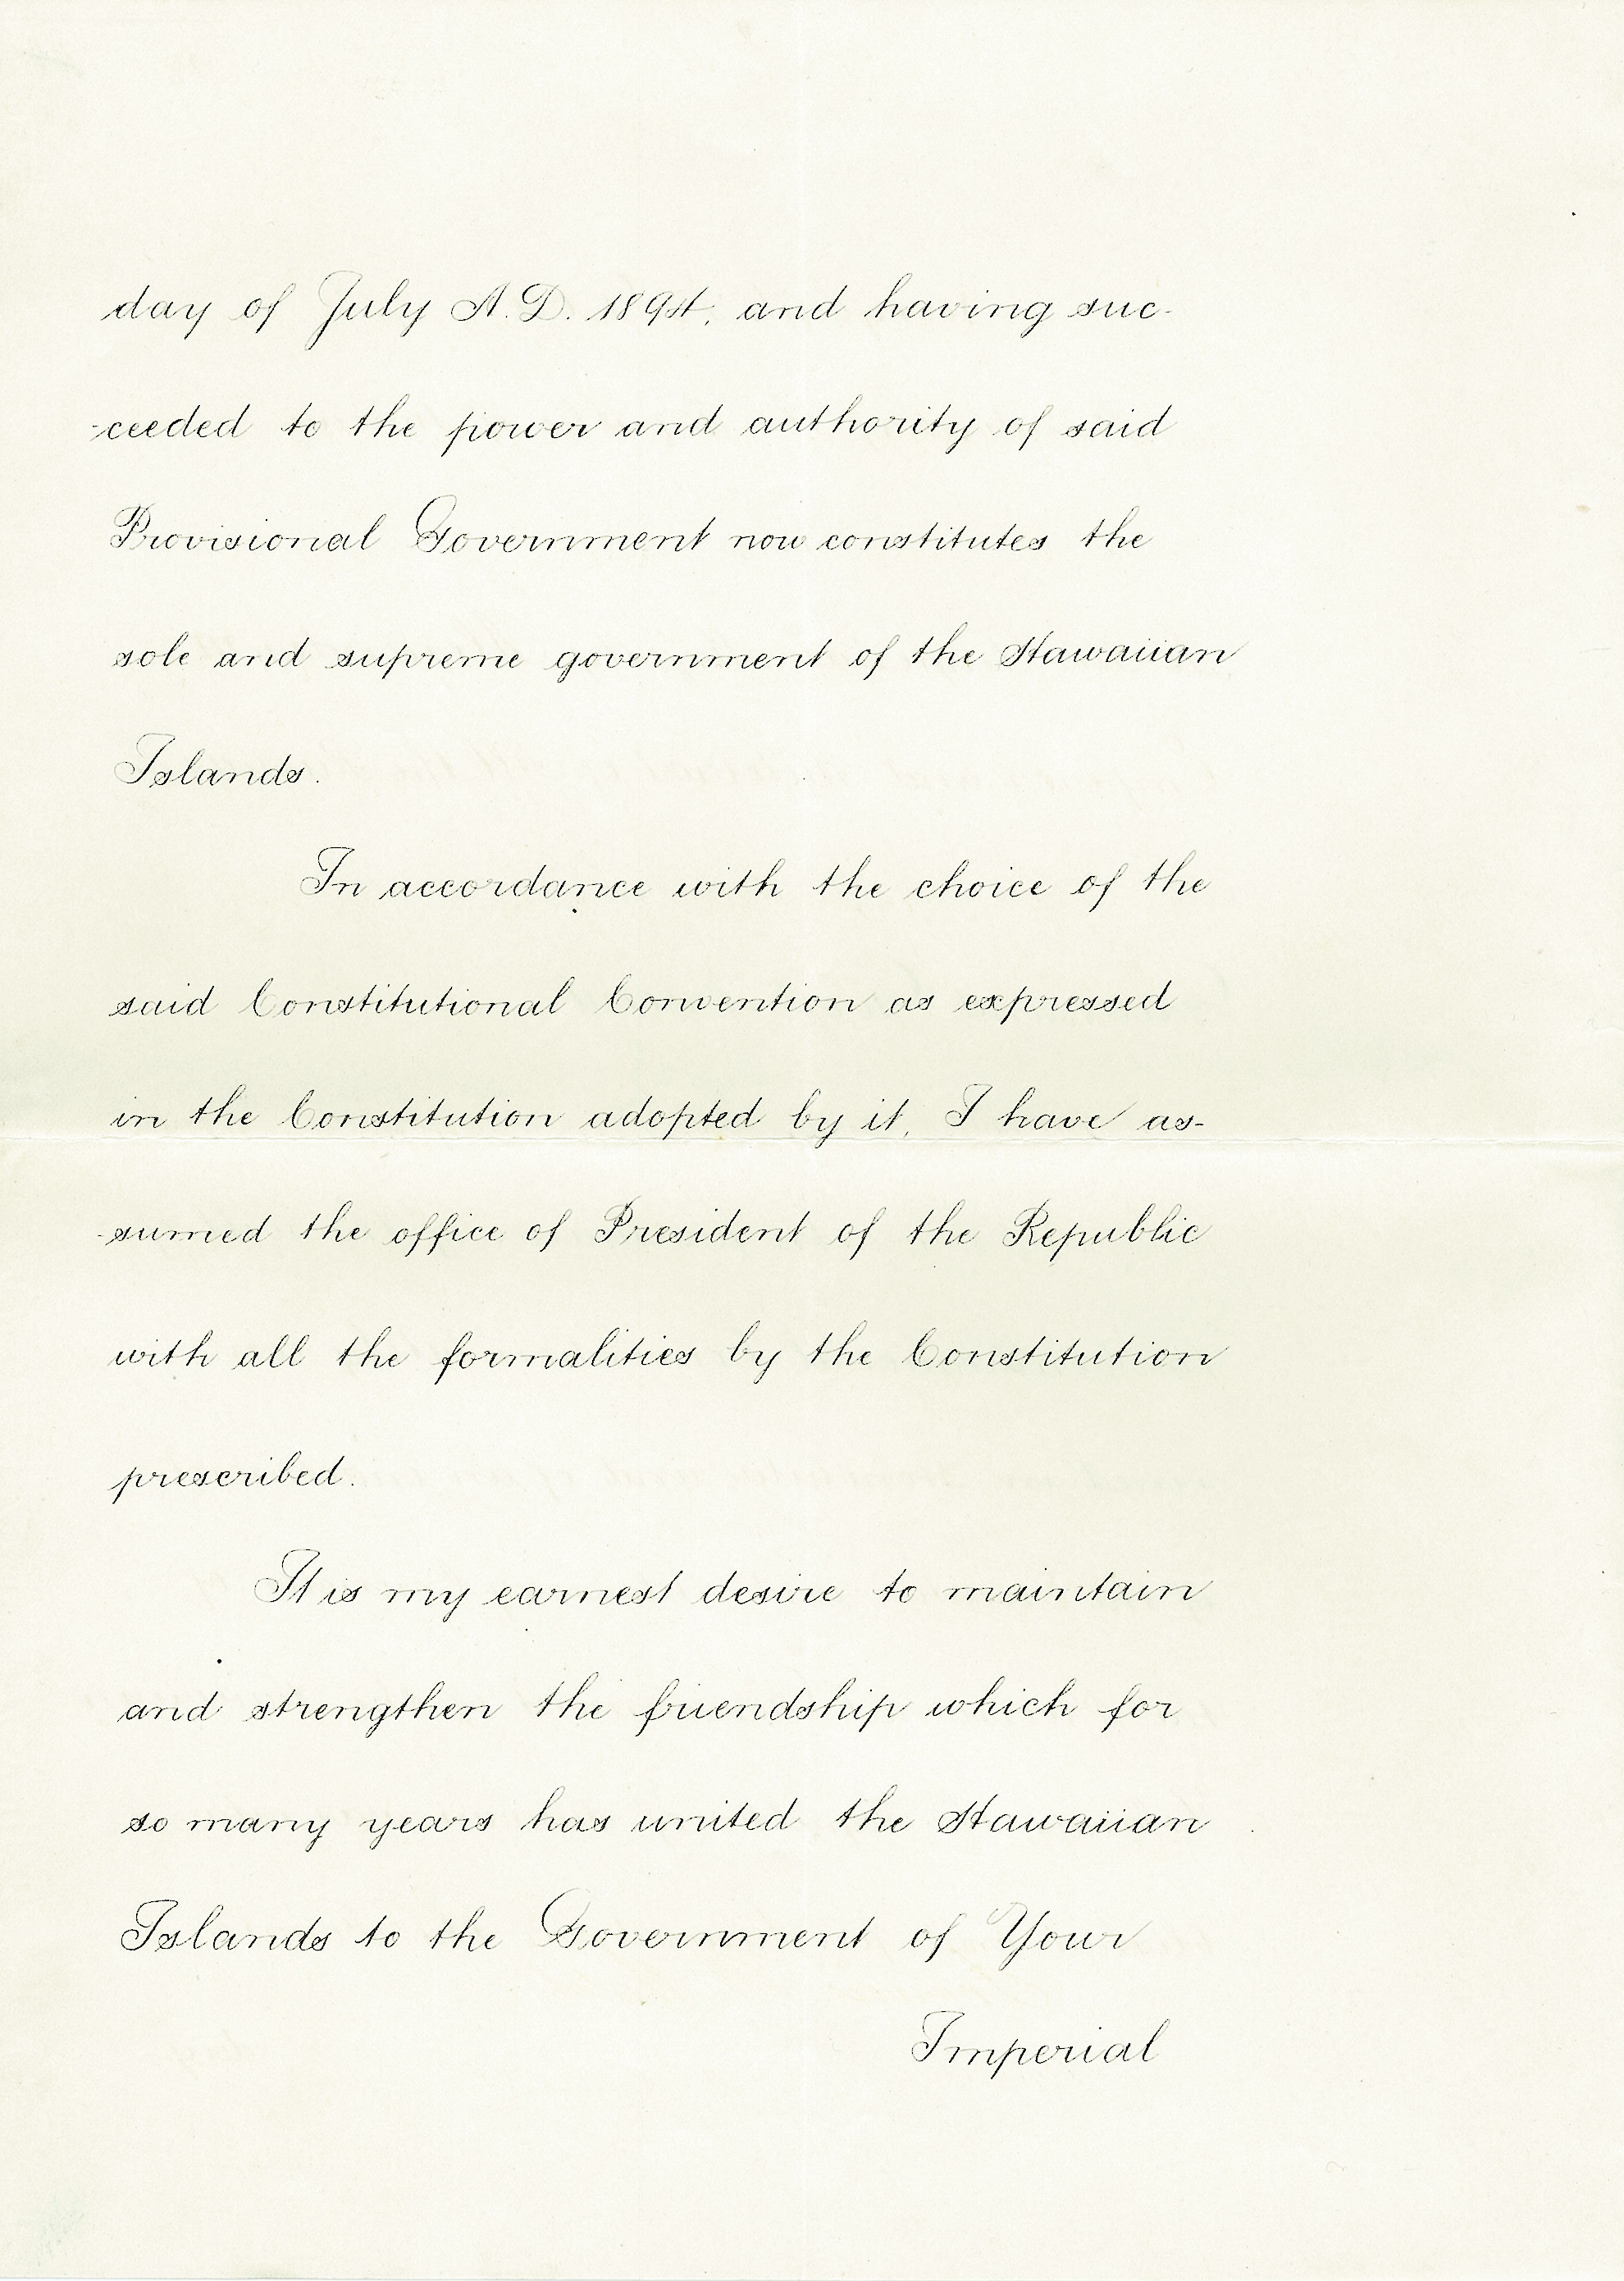 day of July A.D. 1894, and having suc-
-ceeded to the power and authority of said
Provisional Government now constitutes the
sole and supreme government of the Hawaiian
Islands.
In accordance with the choice of the
said Constitutional Convention as expressed
in the Constitution adopted by it, I have as-
-sumed the office of President of the Republic
with all the formalities by the Constitution
prescribed.
It is my earnest desire to maintain
and strengthen the friendship which for
so many years has united the Hawaiian
Islands to the Government of Your
Imperial